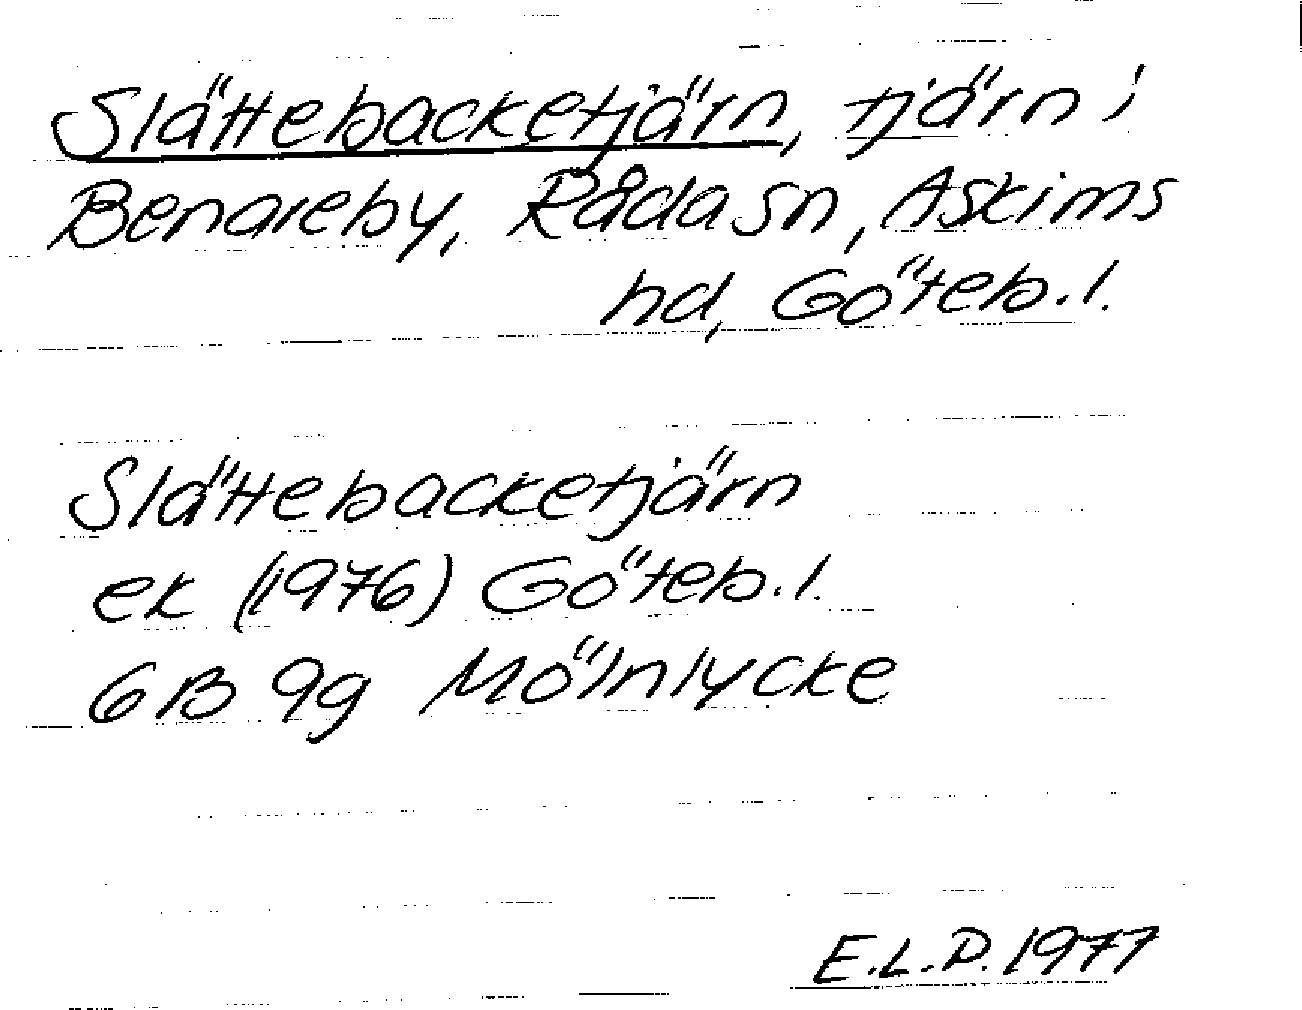 Slättebacketjärn, tjärn i
Benareby, Råda sn, Askims
hd, Göteb. l.
Slättebacketjärn
ek (1976) Göteb. l.
6B 9g Mölnlycke
E.L.P. 1977